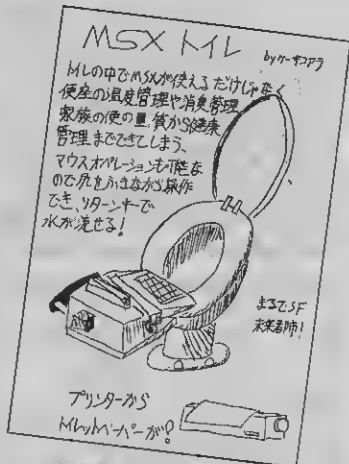 MSXトイレ
byケーキコアラ
トイレの中でMSXが使えるだけじゃなく
便座の温度管理や消臭管理
家族の便の量、質から健康
管理までできてしまう、
マウスオペレーションも可能な
ので尻をふきながら操作
でき、リターンキーで
水が流せる!
まるでSF
未来都市!
プリンターから
トイレットペーパーが!?